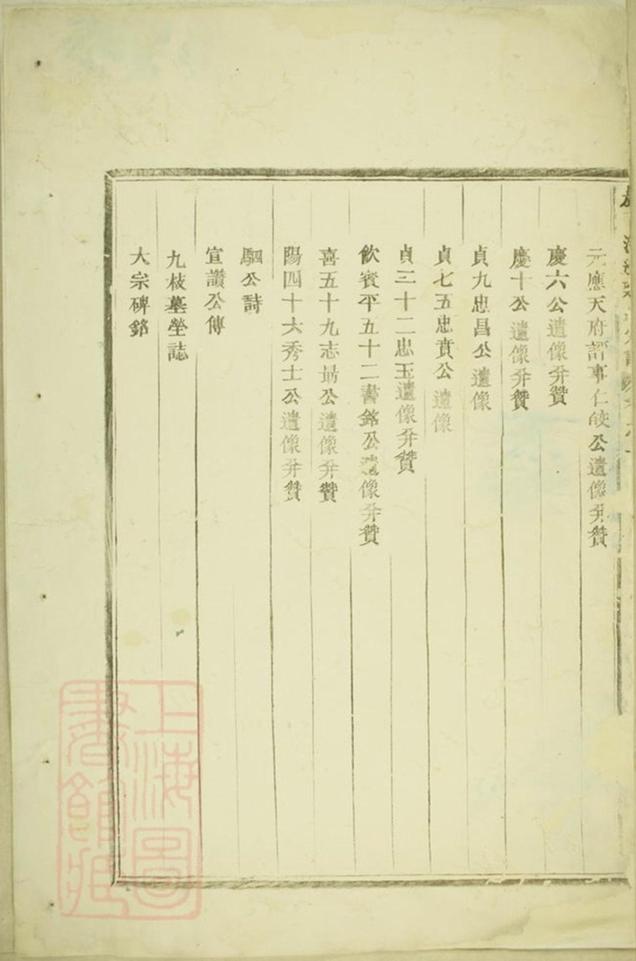 元應天府評事仁皎公遺像幷贊
慶六公遺像幷贊
慶十公遺像幷贊
貞九忠昌公遺像
貞七五忠賁公遺像
貞三十二忠玉遺像幷贊
飲賓平五十二書銘公遺像幷贊
喜五十九志昂公遺像幷贊
陽四十六秀士公遺像幷贊
駟公詩
宣讚公傳
九枝墓塋誌
大宗碑銘
上海圖書館藏